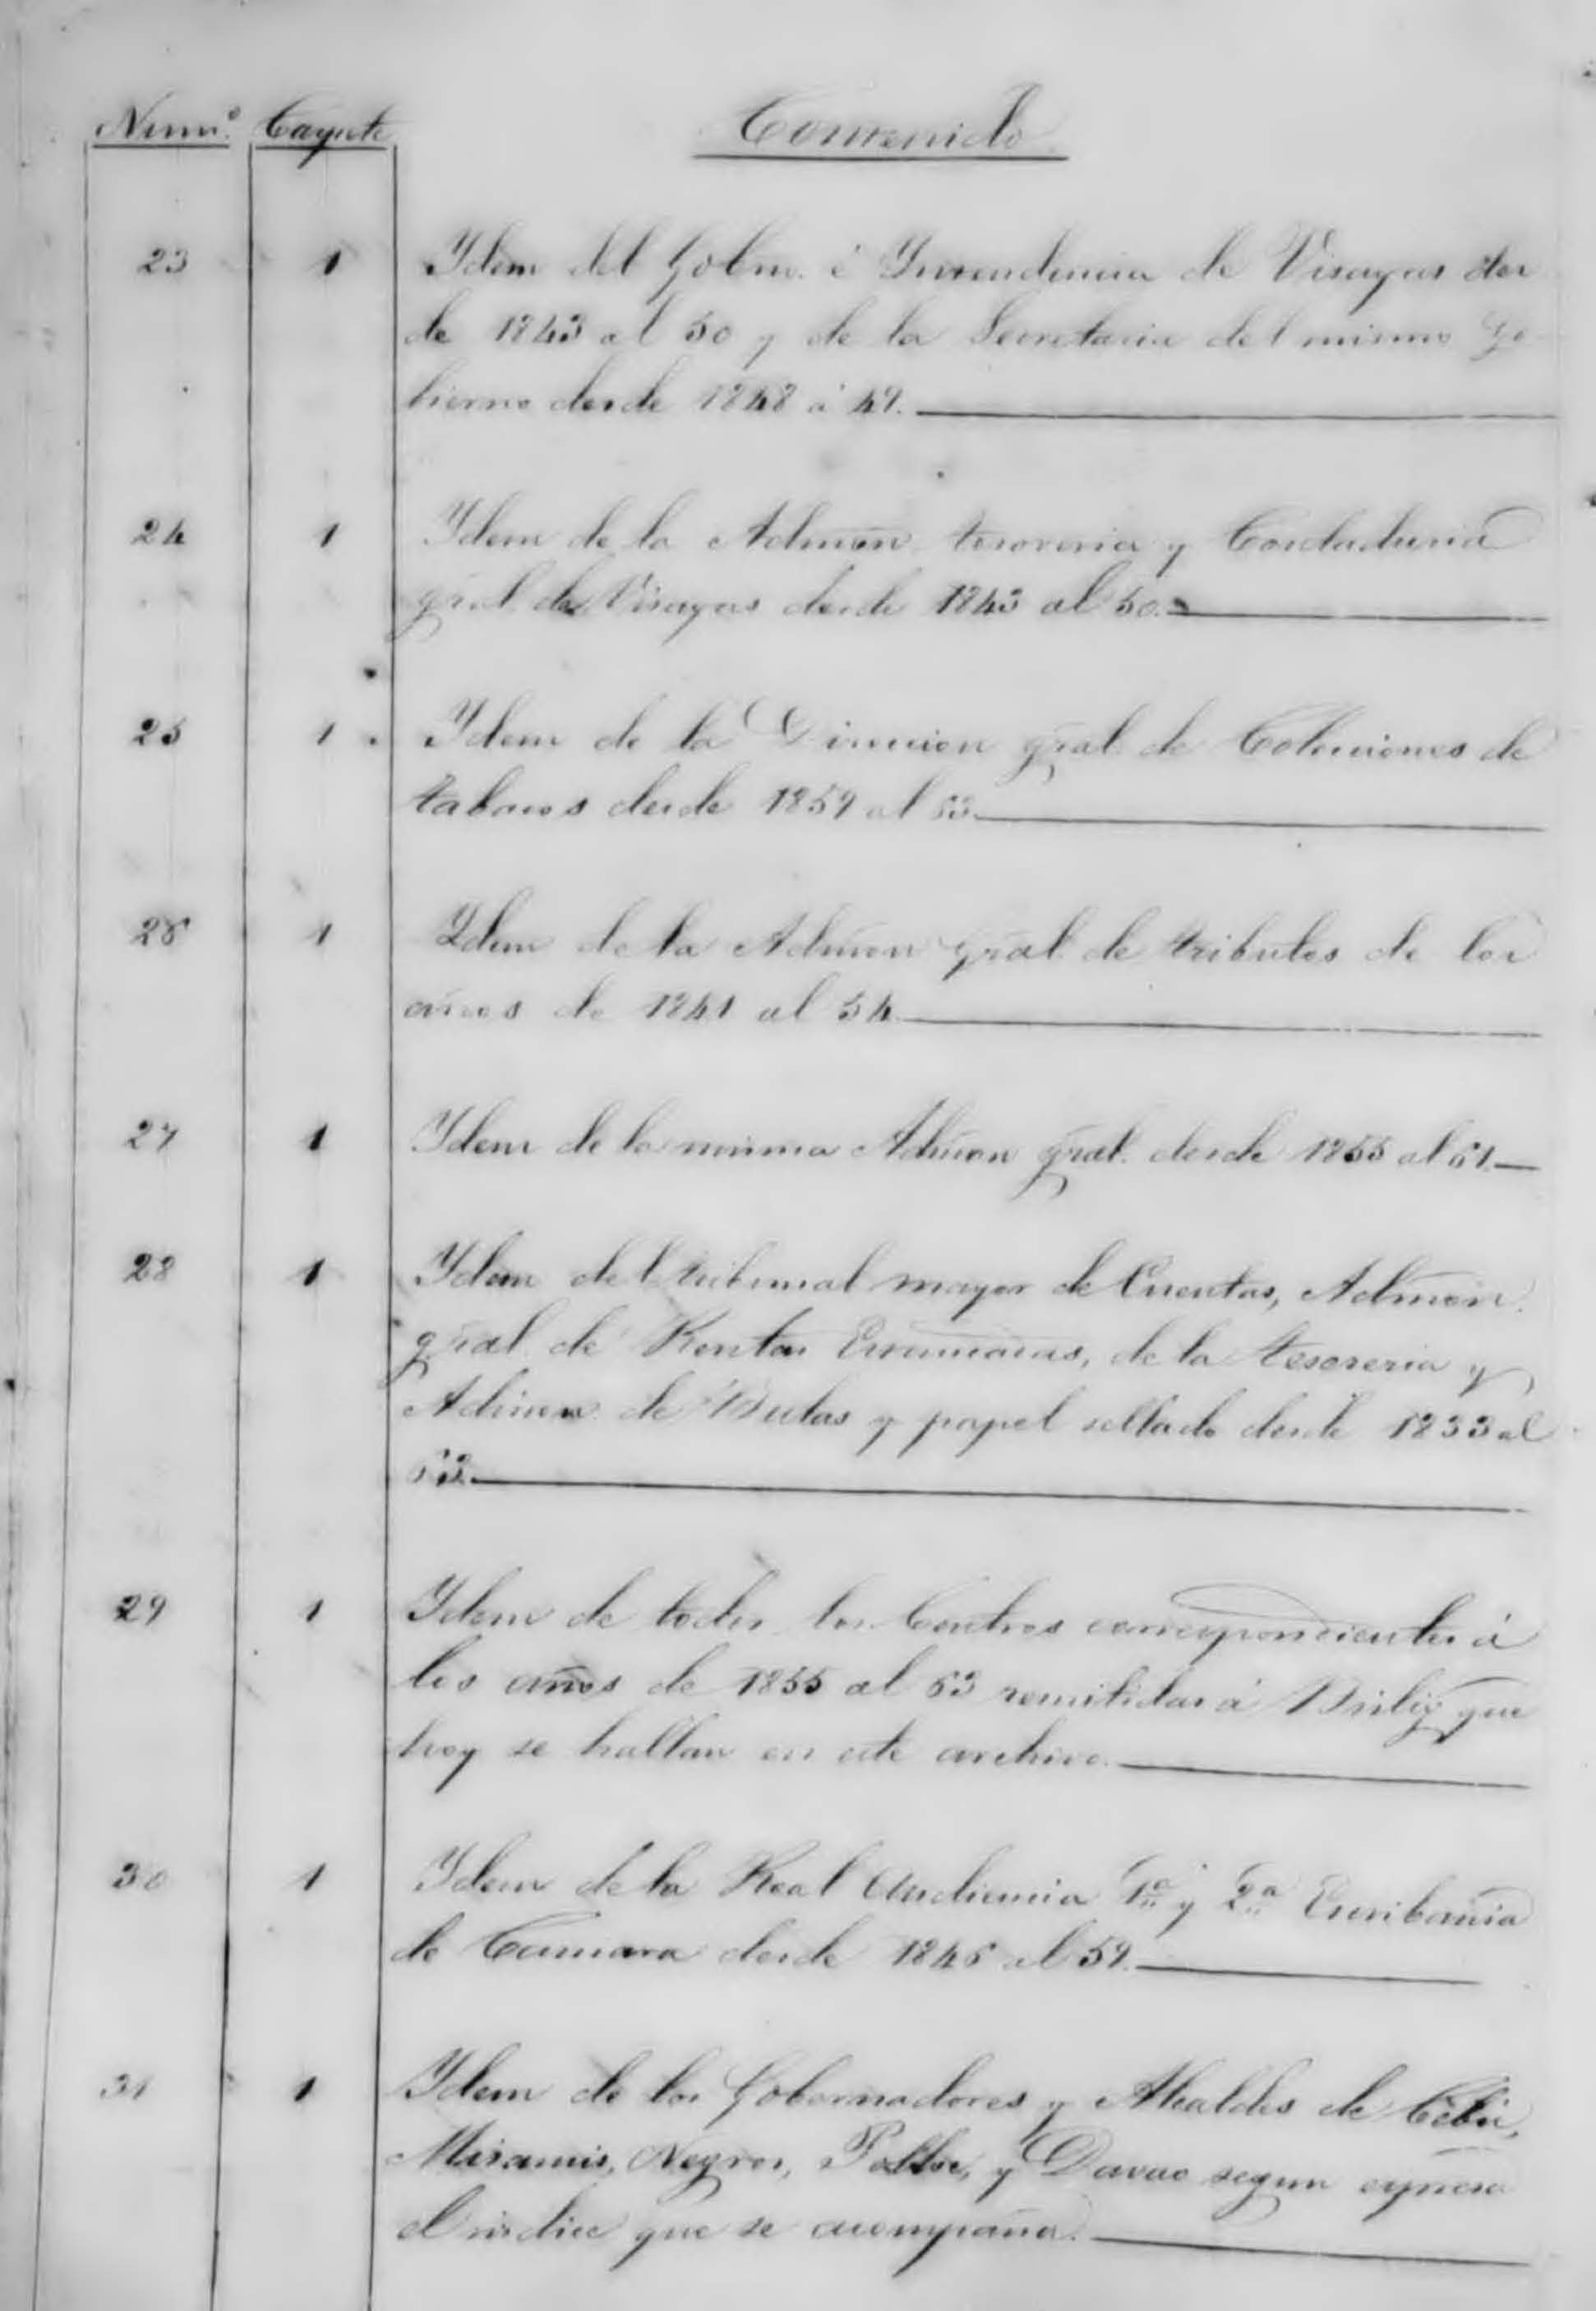 Num.º Cayote Contenido
23 1 Ydem del Gobno. é Yntendencia de Visayas des
de 1843 al 50 y de la Secretaria del mismo Go
bierno desde 1848 á 49.
24 1 Ydem de la Admon. tesoreria y Contaduria
gral. de Visayas desde 1843 al 50.
25 1 Ydem de la Direccion gral. de Colecciones de
tabacos desde 1859 al 63.
26 1 Ydem de la Admon gral. de tributos de los
años de 1841 al 54.
27 1 Ydem de la misma Admon gral. desde 1855 al 61.
28 1 Ydem del tribunal mayor de Cuentas, Admon.
gral. de Rentas Estancadas, de la tesoreria y
Admon. de Bulas y papel sellado desde 1833 al
29 1 Ydem de todos los Centros correspondientes á
los años de 1855 al 63 remitidas á que
hoy se hallan en este archivo.
30 1 Ydem de la Real Audiencia 1.ª y 2.ª Escribania
de Camara desde 1846 al 59.
31 1 Ydem de los Gobernadores y Alcaldes de Cebú,
Misamis, Negros, Pollok, y Davao segun expresa
el indice que se acompaña.